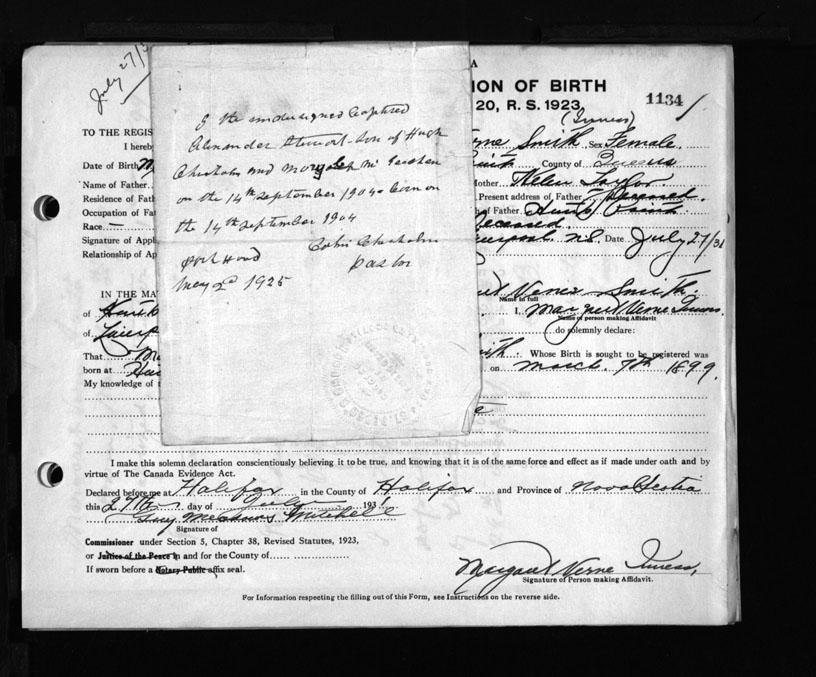 July 27/3
I the undersigned baptised
Alexander Stewart son of Hugh
Chisholm and Margaret
on the 14th september 1904 born on
the 14th september 1904
Colin Chisholm
Port Hood
Pastor
May 1925
A
ION OF BIRTH
20, R. S. 1923
1134
(Inness)
TO THE REGIS
I hereby
Verne Smith Sex Female
Date of Birth
County of Queens
Name of Father
Mother Helen Taylor
Residence of Fath
Present address of Father Deceased
Occupation of Fat
of Father Hunts Point
Race —
Deceased
Signature of Appli
Liverpool N.S. Date July 27/31
Relationship of Ap
IN THE MA
Verne Smith
Name in full
of Hunts
I, Margaret Verne Inness
Name of person making Affidavit
of Liverp
do solemnly declare:
That Ma
Smith. Whose Birth is sought to be registered was
born at Hun
on March 7th 1899.
My knowledge of t
I make this solemn declaration conscientiously believing it to be true, and knowing that it is of the same force and effect as if made under oath and by
virtue of The Canada Evidence Act.
Declared before me at Halifax in the County of Halifax and Province of Nova Scotia
this 27th day of July 193
Mitchell
Signature of
Commissioner under Section 5, Chapter 38, Revised Statutes, 1923,
or Justice of the Peace in and for the County of
If sworn before a Notary Public affix seal.
Margaret Verne Inness,
Signature of Person making Affidavit.
For Information respecting the filling out of this Form, see Instructions on the reverse side.